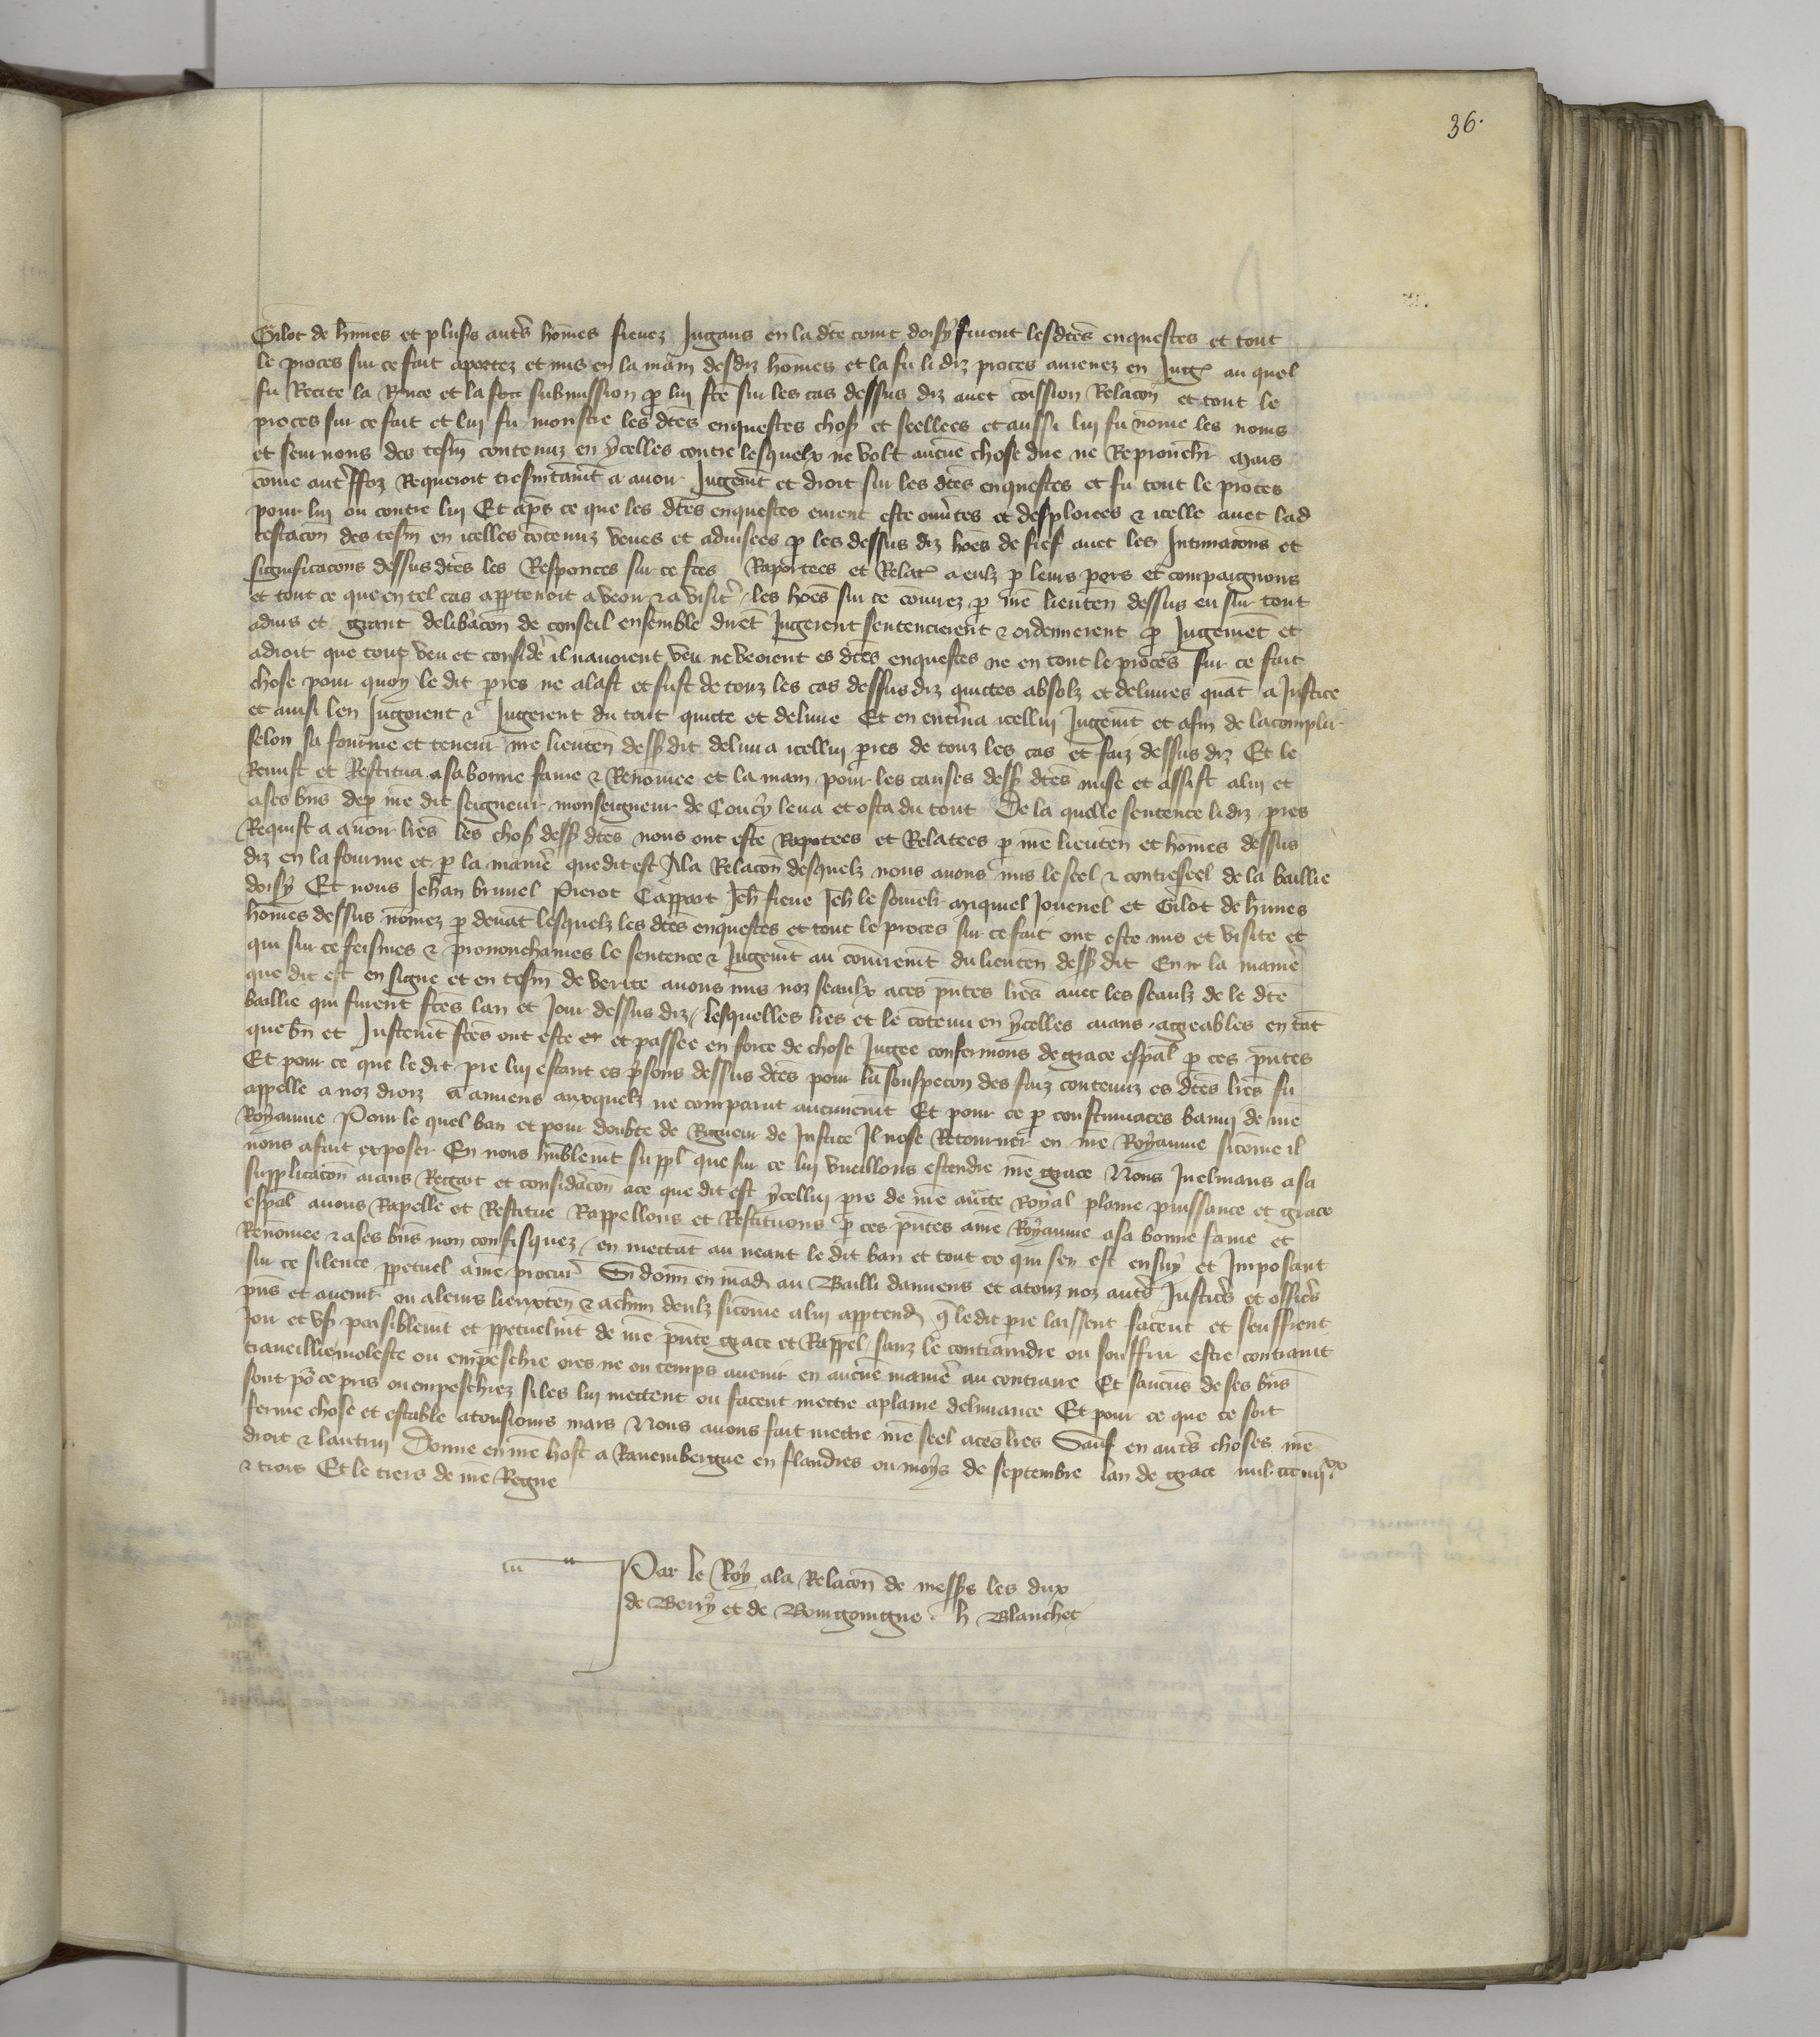 36.
Gilot de hmes et plusrs autrs homes fievez Jugans en la dte court doisy furent lesdtes enquestes et tout
le proces sur ce fait aportez et mis en la main desdiz homes et la fu li diz proces amenez en Jug au quel
fu Recite la et la submission p lui fte sur les cas dessus diz avec comission Relacon et tout le
proces sur ce fait et lui fu monstre les dtes enquestes choses et seellees et aussi lui fu nome les noms
et seurnons des tesm contenuz en ycelles contre lesquelx ne volt aucune chose dire ne Reprouchr mais
come autreffoz Requeroit tresinstamt a avoir Jugemt et droit sur les dtes enquestes et su tout le proces
pour lui ou contre lui Et aps ce que les dtes enquestes eurent este ouvrtes et desploiees & icelle avec lad
testacon des tesm en icelles cotenuz veues et advisees p les dessus diz hoes de fief avec les Intimacons et
significacons dessus dtes les Responces sur ce ftes Raportees et Relat a eulz p leurs pers et compaignons
et tout ce que en tel cas apptenoit a veoir & a visitr / les hoes sur ce couvrez p nre lieuten dessus eu sur tout
advis et grant delibacon de conseil ensemble dirent Jugerent sentencierent & ordennerent p Jugemet et
a droit que tout veu et considere il navoient veu ne veoient es dtes enquestes ne en tout le proces sur ce fait
chose pour quoy le dit pres ne alast et fust de touz les cas dessus diz quictes absolz et delivres quat a Justice
et ainsi len Jugoient & Jugerent du tout quicte et delivre Et en entrina icellui Jugemt et afin de lacomplir
selon sa fourme et teneur nre lieuten dess dit delivra icellui pres de touz les cas et faiz dessus diz Et le
Remist et Restitua a sa bonne fame & Renomee et la main pour les causes dess dtes mise et assist a lui et
a ses bns dep nre dit seigneur monseigneur de Coucy leva et osta du tout De la quelle sentence li diz pres
Requist a avoir lres les choses dess dtes nous ont este Raportees et Relatees p nre lieuten et homes dessus
diz en la fourme et p la manie que dit est A la Relacon desquelz nous avons mis le seel & contreseel de la baillie
doisy Et nous Jehan brunel Pierot Cappart Jeh fieve Jeh le somelr miquiel Jouenel et Gilot de hmes
homes dessus nomez p devat lesquelz les dtes enquestes et tout le proces sur ce fait ont este mis et visite et
qui sur ce feismes & prononchames le sentence & Jugemt au couvremt du lieuten dess dit En la manie
que dit est en signe et en tesm de verite avons mis noz seaulx a ces pntes lres avec les seaulz de le dte
baillie qui furent ftes lan et Jour dessus diz / lesquelles lres et le cotenu en ycelles aians agreables en tat
que bn et Justemt ftes ont este et passee en force de chose Jugee confermons de grace espal p ces pntes
Et pour ce que le dit pre lui estant es prisons dessus dtes pour la souspecon des faiz contenuz es dtes lres fu
appelle a noz droiz a amiens auxquelz ne comparut aucunemt Et pour ce p constumaces banni de nre
Royaume Pour le quel ban et pour doubte de Rigueur de Justice Il nose Retourner en nre Royaume sicome il
nous a fait exposer En nous humblemt suppl que sur ce lui vueillons estendre nre grace Nous Inclinans a sa
supplicacon aians Regart et considacon a ce que dit est ycellui pre de nre aucte Royal plaine puissance et grace
espal avons Rapelle et Restitue Rappellons et Restituons p ces pntes a nre Royaume a sa bonne fame et
Renomee & a ses bns non confisquez / en mectat au neant le dit ban et tout ce qui sen est ensuy et Imposant
sur ce silence ppetuel a nre procur Si donn en mad au Bailli damiens et a touz noz autrs Justicrs et officrs
pns et avenir ou a leurs lieuxten & a chun deulz sicome a lui apptend q le dit pre laissent facent et seuffrent
Joir et us paisiblemt et ppetuelmt de nre pnte grace et Rappel / sanz le contraindre ou souffrir estre contraint
traveillie moleste ou empeschie ores ne ou temps avenir en aucune manie au contraire Et saucuns de ses bns
sont po ce pris ou empeschiez si les lui mectent ou facent mectre a plaine delivrance Et pour ce que ce soit
ferme chose et estable a tousiours mais Nous avons fait mectre nre seel a ces lres Sauf en autrs choses nre
droit & lautrui Donne en nre host a Ravembergue en flandres ou moys de septembre lan de grace mil ccc iiii xx
& trois Et le tiers de nre Regne
Par le Roy a la Relacon de messrs les dux
de Berry et de Bourgoingne . h Blanchet